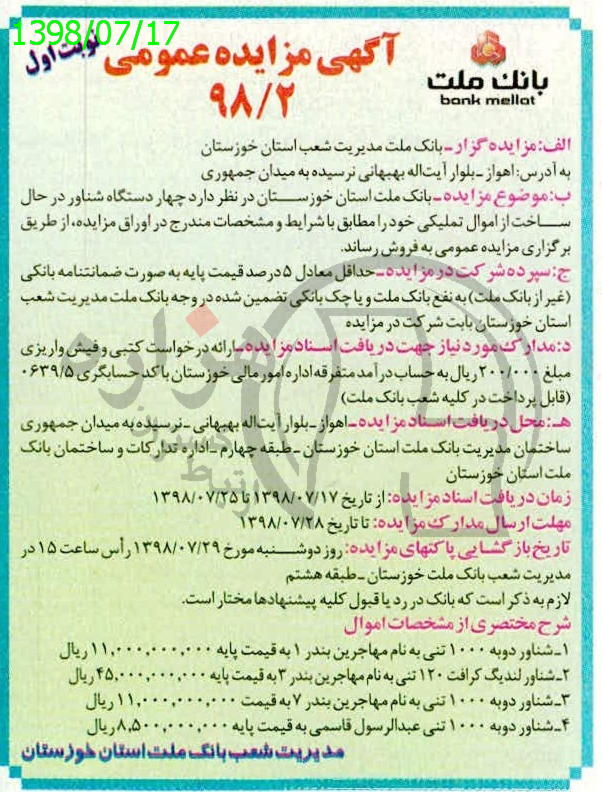 1398/07/17
نوبت اول
آگهی مزایده عمومی
۹۸/۲
بانک ملت
bank mellat
الف: مزایده گزار ـ بانک ملت مدیریت شعب استان خوزستان
به آدرس: اهواز ـ بلوار آیت‌اله بهبهانی نرسیده به میدان جمهوری
ب: موضوع مزایده ـ بانک ملت استان خوزستان در نظر دارد چهار دستگاه شناور در حال
ساخت از اموال تملیکی خود را مطابق با شرایط و مشخصات مندرج در اوراق مزایده، از طریق
برگزاری مزایده عمومی به فروش رساند.
ج: سپرده شرکت در مزایده ـ حداقل معادل ۵ درصد قیمت پایه به صورت ضمانتنامه بانکی
(غیر از بانک ملت) به نفع بانک ملت و یا چک بانکی تضمین شده در وجه بانک ملت مدیریت شعب
استان خوزستان بابت شرکت در مزایده
د: مدارک مورد نیاز جهت دریافت اسناد مزایده ـ ارائه درخواست کتبی و فیش واریزی
مبلغ ۲۰۰/۰۰۰ ریال به حساب درآمد متفرقه اداره امور مالی خوزستان با کد حسابگری ۰۶۳۹/۵
(قابل پرداخت در کلیه شعب بانک ملت)
هـ: محل دریافت اسناد مزایده ـ اهواز ـ بلوار آیت‌اله بهبهانی ـ نرسیده به میدان جمهوری
ساختمان مدیریت بانک ملت استان خوزستان ـ طبقه چهارم ـ اداره تدارکات و ساختمان بانک
ملت استان خوزستان
زمان دریافت اسناد مزایده: از تاریخ ۱۳۹۸/۰۷/۱۷ تا ۱۳۹۸/۰۷/۲۵
مهلت ارسال مدارک مزایده: تا تاریخ ۱۳۹۸/۰۷/۲۸
تاریخ بازگشایی پاکتهای مزایده: روز دوشنبه مورخ ۱۳۹۸/۰۷/۲۹ رأس ساعت ۱۵ در
مدیریت شعب بانک ملت خوزستان ـ طبقه هشتم
لازم به ذکر است که بانک در رد یا قبول کلیه پیشنهادها مختار است.
شرح مختصری از مشخصات اموال
۱ـ شناور دوبه ۱۰۰۰ تنی به نام مهاجرین بندر ۱ به قیمت پایه ۱۱,۰۰۰,۰۰۰,۰۰۰ ریال
۲ـ شناور لندیگ کرافت ۱۲۰ تنی به نام مهاجرین بندر ۳ به قیمت پایه ۴۵,۰۰۰,۰۰۰,۰۰۰ ریال
۳ـ شناور دوبه ۱۰۰۰ تنی به نام مهاجرین بندر ۷ به قیمت ۱۱,۰۰۰,۰۰۰,۰۰۰ ریال
۴ـ شناور دوبه ۱۰۰۰ تنی عبدالرسول قاسمی به قیمت پایه ۸,۵۰۰,۰۰۰,۰۰۰ ریال
مدیریت شعب بانک ملت استان خوزستان